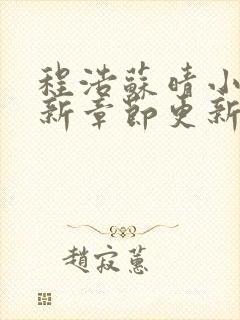 程浩蘇晴小
新章節更新
趙寂蕙